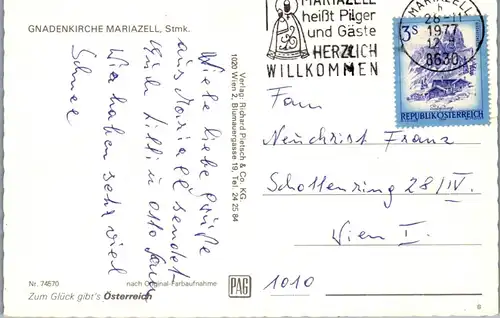 GNADENKIRCHE MARIAZELL, Stmk.
Viele liebe Grüße
aus Mariazell sendet
Euch Lilli u Otto
Wir haben sehr viel
Schnee
Nr. 74570 nach Original-Farbaufnahme
Zum Glück gibt's Österreich
Verlag: Richard Pietsch & Co. KG.
1020 Wien 2, Blumauergasse 19, Tel. 24 25 84
PAG
MARIAZELL
heißt Pilger
und Gäste
HERZLICH
WILLKOMMEN
MARIAZELL
28-11
1977
12
8630
3s
REPUBLIK ÖSTERREICH
Fam
Neuchrist Franz
Schottenring 28/IV.
Wien I.
1010